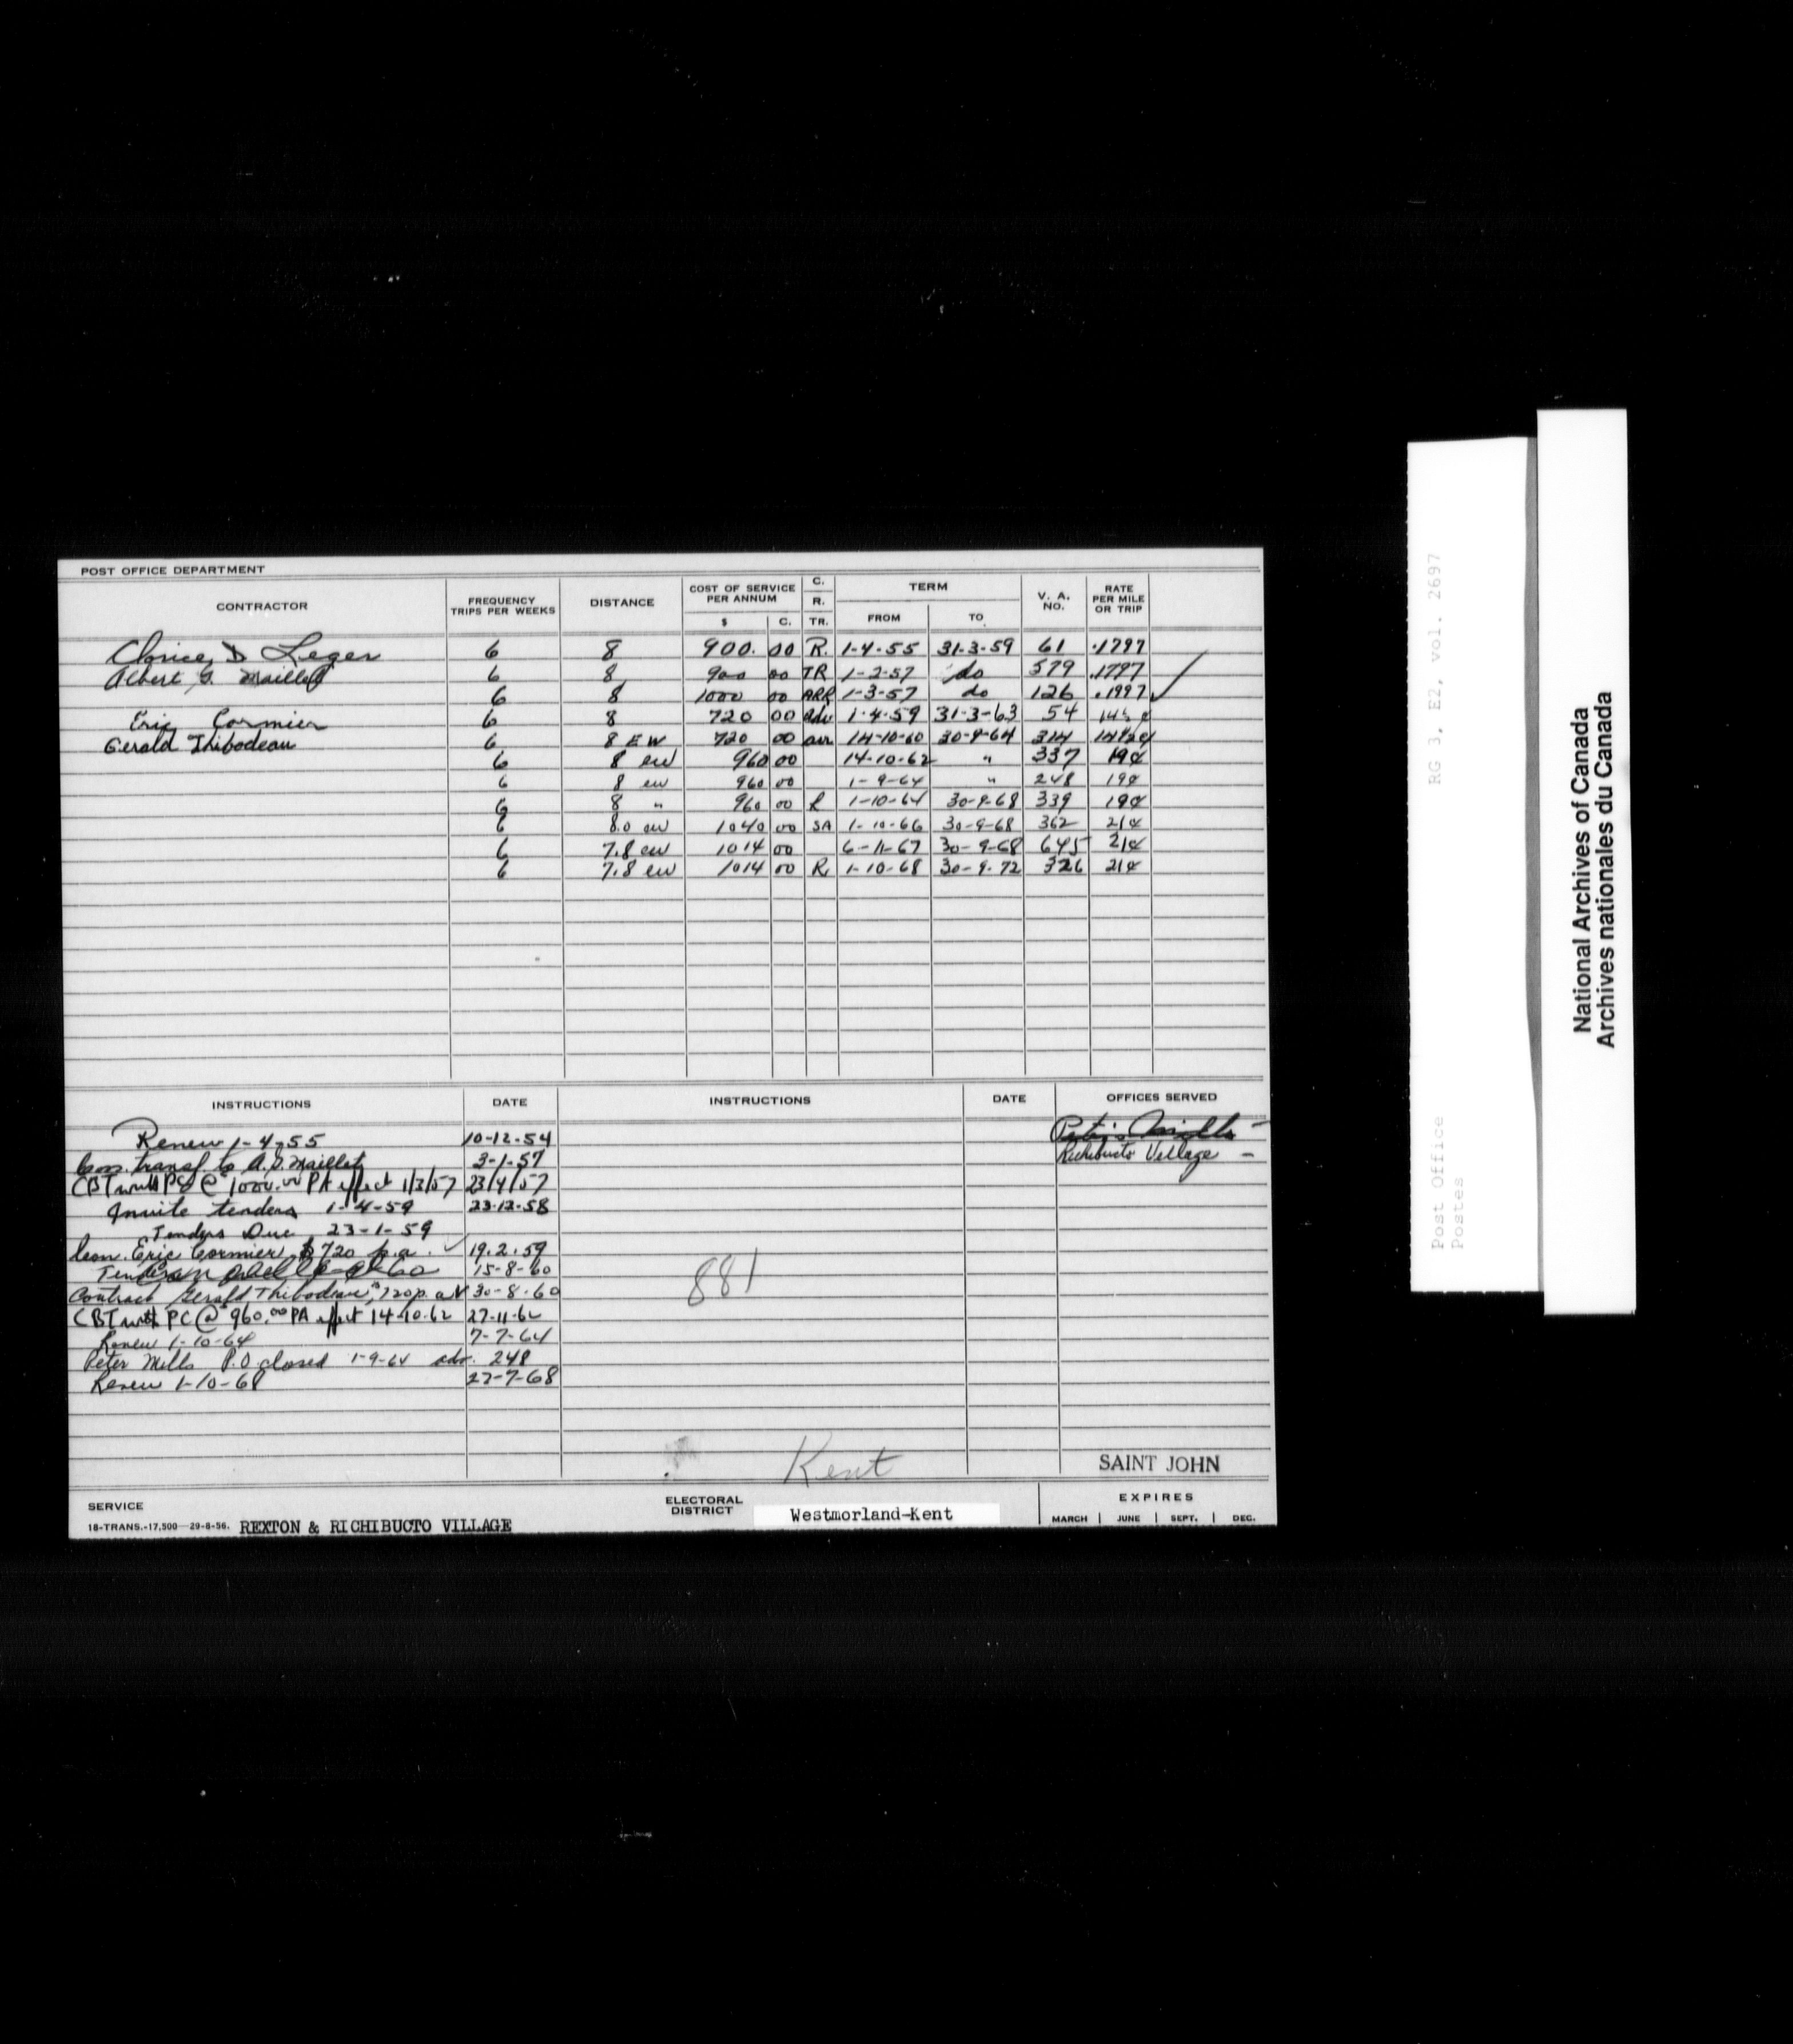 POST OFFICE DEPARTMENT
CONTRACTOR FREQUENCY TRIPS PER WEEKS DISTANCE COST OF SERVICE PER ANNUM $ C. C. R. TR. TERM FROM TO V. A. NO. RATE PER MILE OR TRIP
Clarice D Leger 6 8 900. 00 R. 1-4-55 31-3-59 61 .1797
Albert J. Maillet 6 8 900 00 TR 1-2-57 do 579 .1797
6 8 1000 00 ARR 1-3-57 do 126 .1997 ✓
Eric Cormier 6 8 720 00 adv 1-4-59 31-3-63 54 14½ ¢
Gerald Thibodeau 6 8 EW 720 00 14-10-60 30-9-64 314 14½¢
6 8 ew 960 00 14-10-62 " 337 19¢
6 8 ew 960 00 1-9-64 " 248 19¢
6 8 " 960 00 R 1-10-64 30-9-68 339 19¢
6 8.0 ew 1040 00 SA 1-10-66 30-9-68 362 21¢
6 7.8 ew 1014 00 6-11-67 30-9-68 645 21¢
6 7.8 ew 1014 00 R 1-10-68 30-9-72 326 21¢
INSTRUCTIONS DATE INSTRUCTIONS DATE OFFICES SERVED
Renew 1-4-55 10-12-54 Peter's Mills -
Con. transf. to A. J. Maillet 3-1-57 Richibucto Village -
CBT with PC @ 1000.00 PA effect 1/3/57 23/4/57
Invite tenders 1-4-59 23-12-58
Tenders Due 23-1-59
Con. Eric Cormier $720 p.a. ✓ 19.2.59
15-8-60
Contract Gerald Thibodeau $720 p.a. 30-8-60
CBT with PC @ $960.00 PA effect 14-10-62 27-11-62
Renew 1-10-64 7-7-64
Peter Mills P.O. closed 1-9-64 adv. 248
Renew 1-10-68 27-7-68
881
Kent
SAINT JOHN
SERVICE
18-TRANS.-17,500—29-8-56. REXTON & RICHIBUCTO VILLAGE
ELECTORAL DISTRICT Westmorland-Kent
EXPIRES
MARCH JUNE SEPT. DEC.
RG 3, E2, vol. 2697
Post Office
Postes
National Archives of Canada
Archives nationales du Canada